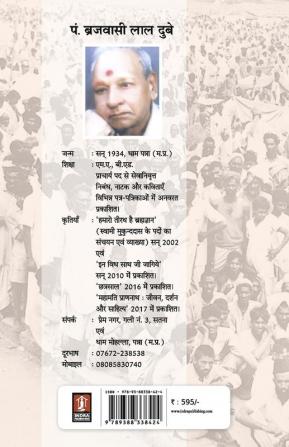 पं. ब्रजवासी लाल दुबे
जन्म : सन् 1934, धाम पन्ना (म.प्र.)
शिक्षा : एम.ए., बी.एड.
प्राचार्य पद से सेवानिवृत्त
निबंध, नाटक और कविताएँ
विभिन्न पत्र-पत्रिकाओं में अनवरत
प्रकाशित।
कृतियाँ : 'हमारो तीरथ है ब्रह्मज्ञान'
(स्वामी मुकुन्ददास के पदों का
संचयन एवं व्याख्या) सन् 2002
एवं
'इन विध साथ जी जागिये'
सन् 2010 में प्रकाशित।
'छत्रसाल' 2016 में प्रकाशित।
'महामति प्राणनाथ : जीवन, दर्शन
और साहित्य' 2017 में प्रकाशित।
संपर्क : प्रेम नगर, गली नं. 3, सतना
एवं
धाम मोहल्ला, पन्ना (म.प्र.)
दूरभाष : 07672-238538
मोबाइल : 08085830740
INDRA
ISBN : 978-93-88338-42-4
9789388338424
₹ : 595/-
www.indrapublishing.com